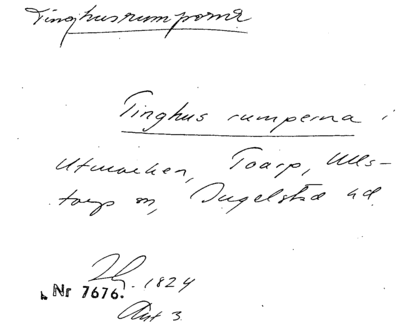 Tinghusrumporna
Tinghus rumperna i
Utmarken, Toarp, Ulls-
torp sn, Ingelstad hd.
1824
Nr 7676.
Akt 3